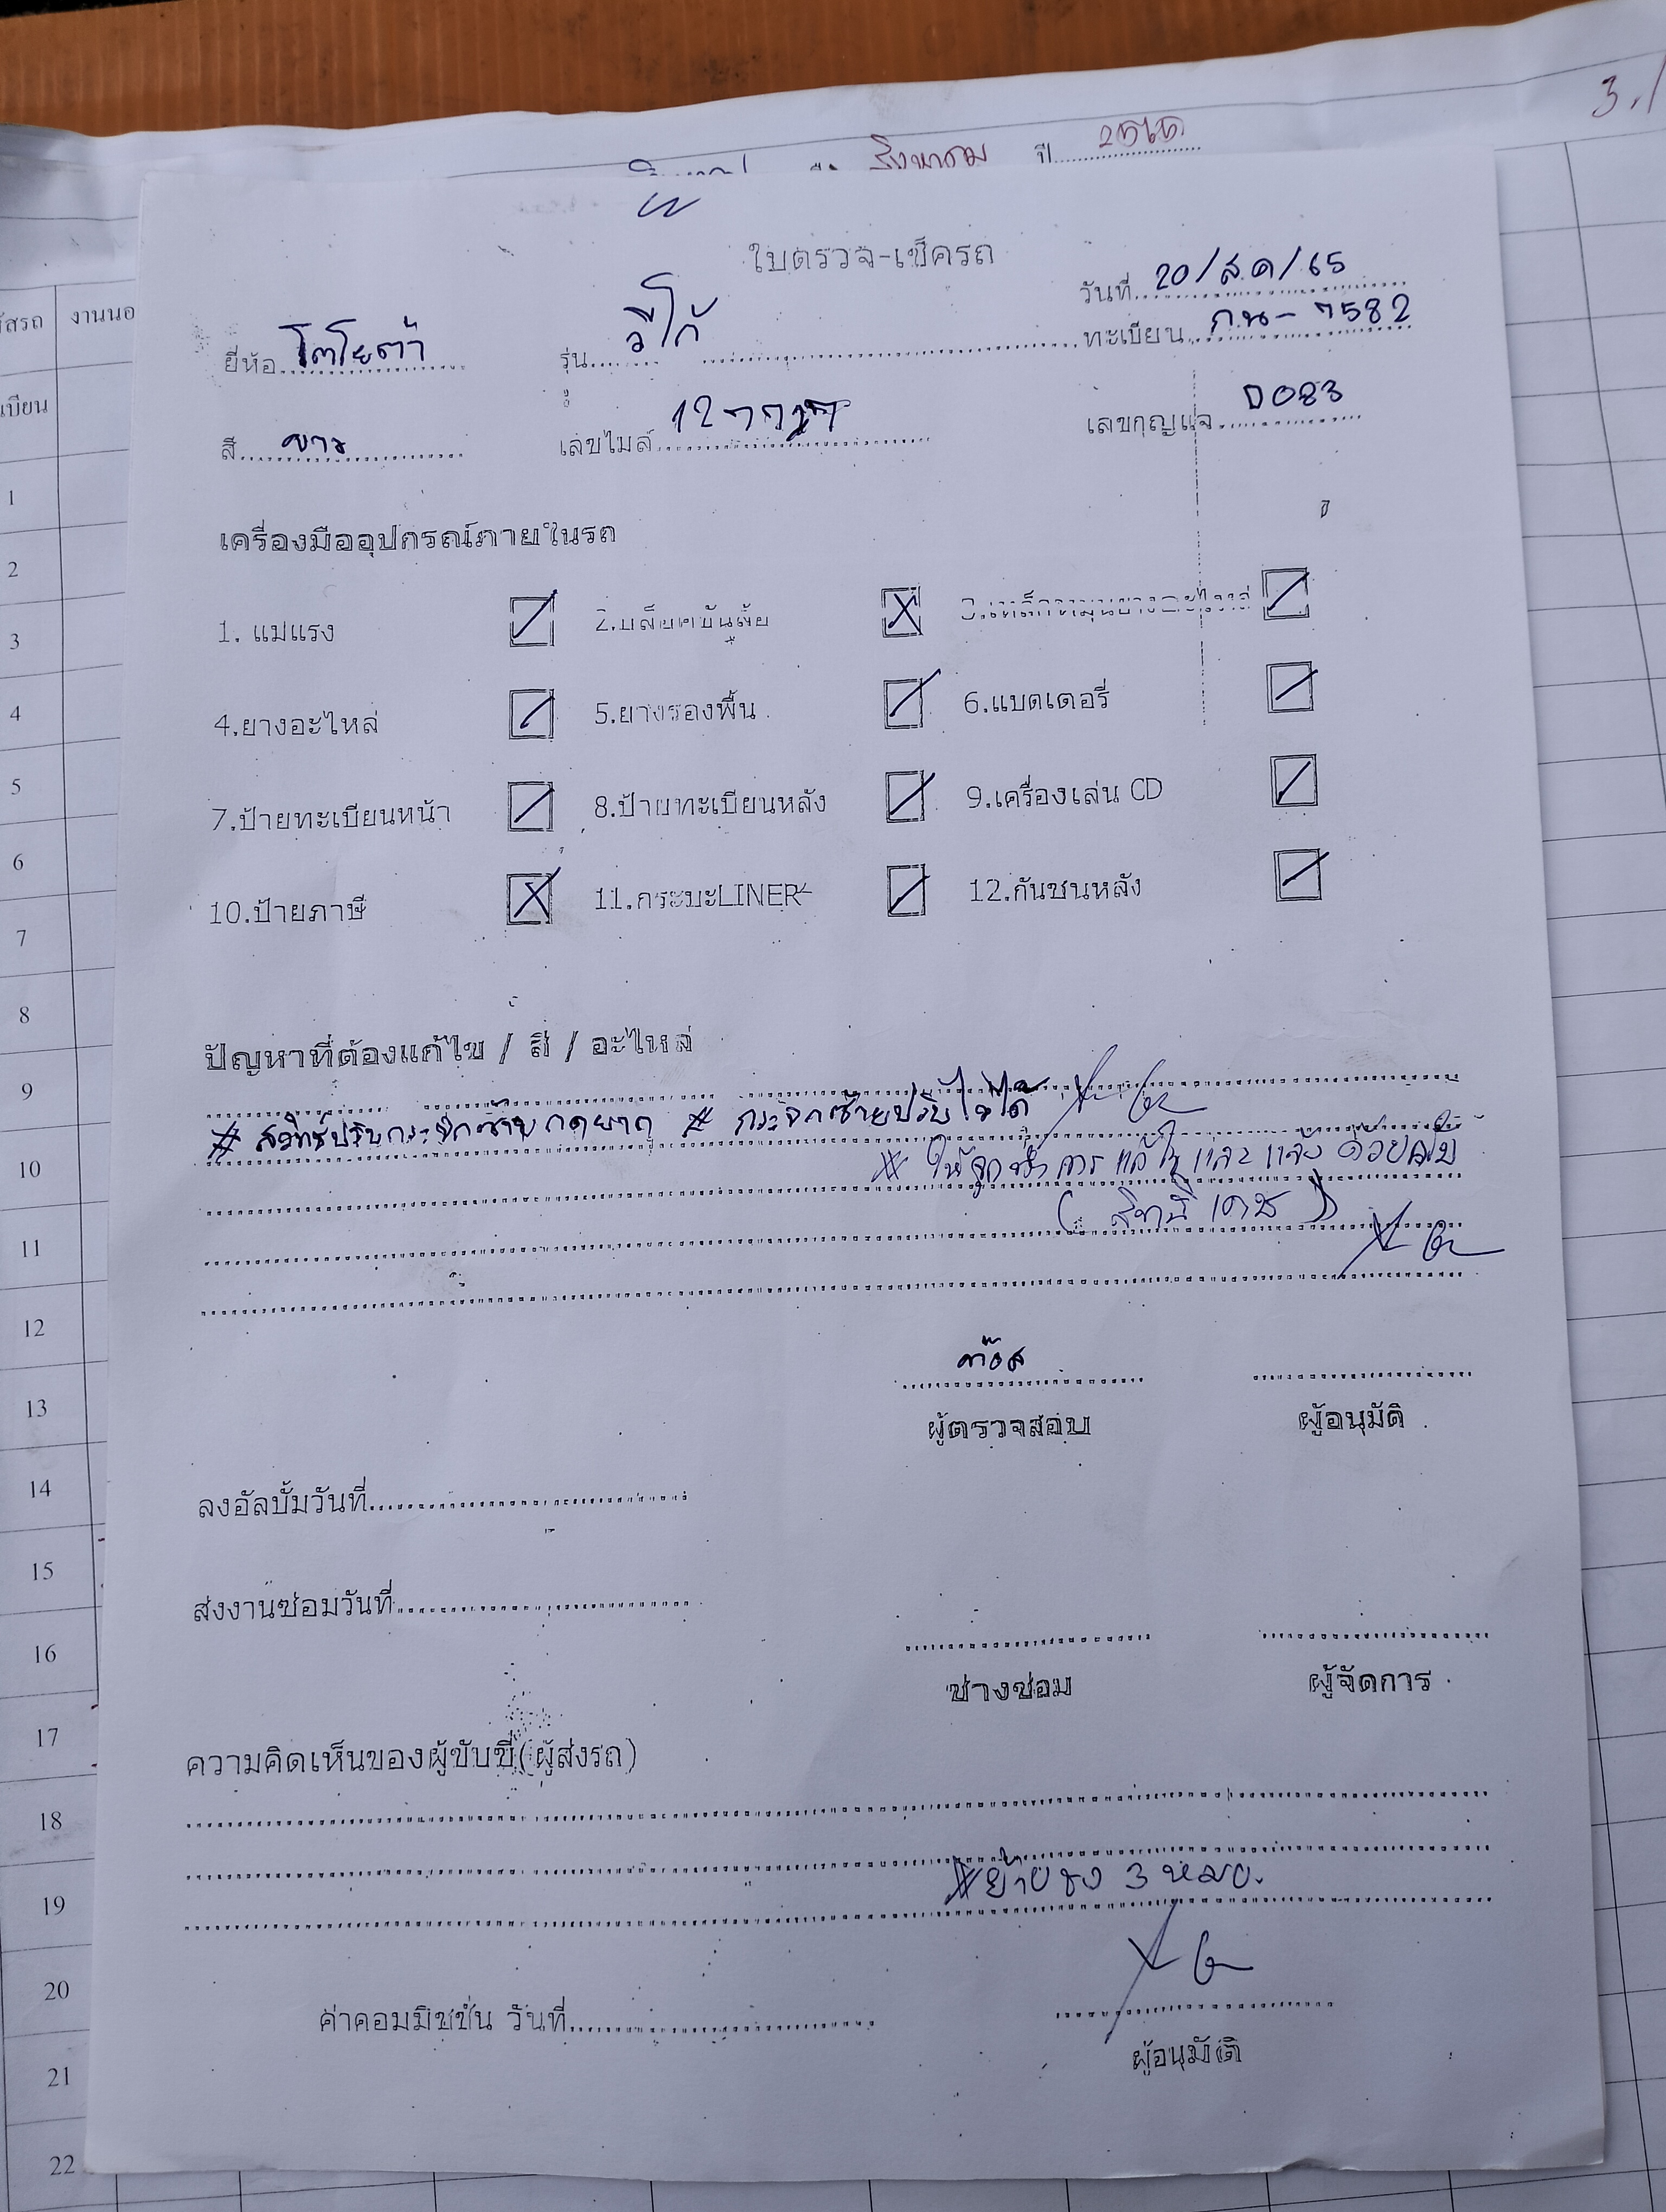 สิงหาคม ปี 2565
3.1
ใบตรวจ-เช็ครถ
วันที่ 20/ส.ค/65
ยี่ห้อ โตโยต้า รุ่น วีโก้ ทะเบียน กน-7582
สี ขาว เลขไมล์ เลขกุญแจ D083
รหัสรถ งานนอ
เบียน
เครื่องมืออุปกรณ์ภายในรถ
1. แม่แรง 2.บล็อคขันล้อ 3.เหล็กหมุนยางอะไหล่
4.ยางอะไหล่ 5.ยางรองพื้น 6.แบตเตอรี่
7.ป้ายทะเบียนหน้า 8.ป้ายทะเบียนหลัง 9.เครื่องเล่น CD
10.ป้ายภาษี 11.กระบะLINER 12.กันชนหลัง
ปัญหาที่ต้องแก้ไข / สี / อะไหล่
# สวิทช์ปรับกระจกซ้าย กดยาก # กระจกซ้ายปรับไม่ได้
แก้ไข และ แจ้ง ด้วยครับ
ผู้ตรวจสอบ ผู้อนุมัติ
ลงอัลบั้มวันที่
ส่งงานซ่อมวันที่
ช่างซ่อม ผู้จัดการ
ความคิดเห็นของผู้ขับขี่(ผู้ส่งรถ)
ย้าย ธง 3 หมอ.
ค่าคอมมิชชั่น วันที่
ผู้อนุมัติ
1
2
3
4
5
6
7
8
9
10
11
12
13
14
15
16
17
18
19
20
21
22